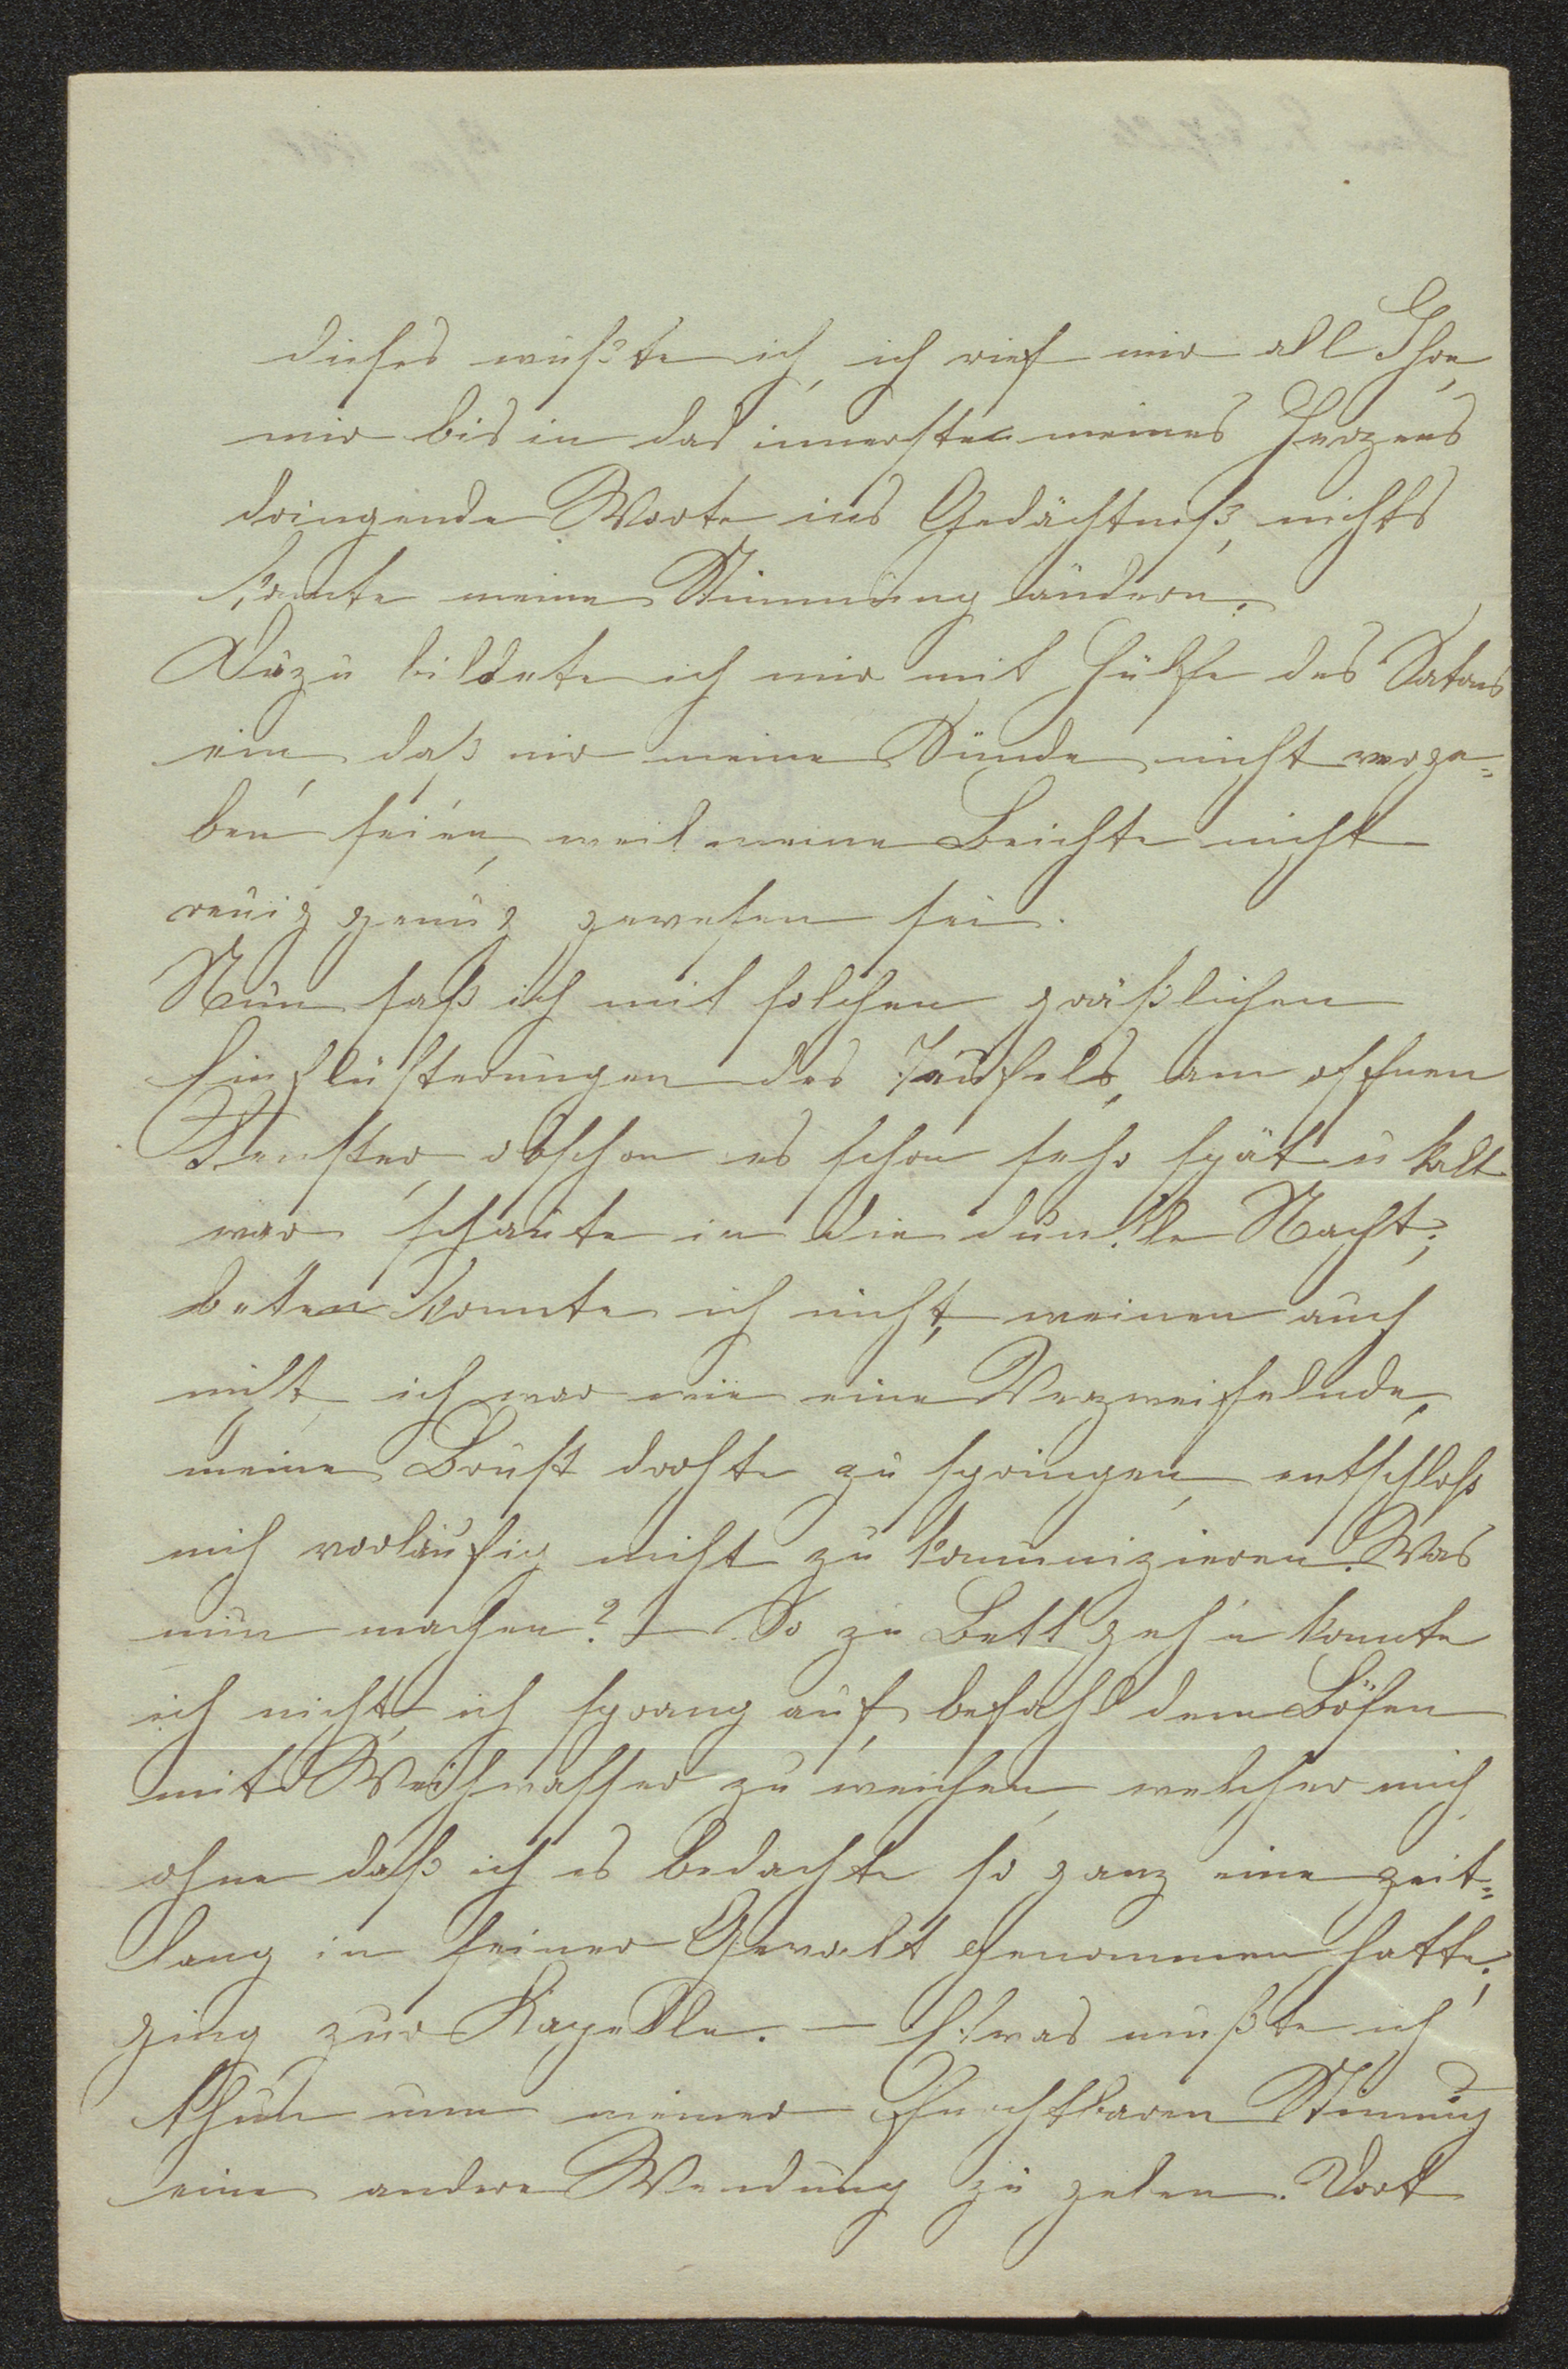 dieses wußte ich, ich rief mir all Ihre,
mir bis in das innerste meines Herzens
dringende Worte ins Gedächtniß, nichts
konnte meine Stimmung ändern.
Dazu bildete ich mir mit Hülfe des Satans
ein, daß mir meine Sünde nicht verge=
ben seien, weil meine Beichte nicht
reuig genug gewesen sei.
Nun saß ich mit solchen gräßlichen
Einflüsterungen des Teufels, am offnen
Fenster, obschon es schon sehr spät u kalt
war, schaute in die dunkle Nacht;
beten konnte ich nicht, weinen auch
nicht, ich war wie eine Verzweifelnde,
meine Brust drohte zu springen, entschloß
mich vorläufig nicht zu kommunizieren. Was
nun machen? — So zu Bett geh'n konnte
ich nicht, ich sprang auf, befahl dem Bösen
mit Weihwasser zu weichen, welcher mich
ohne daß ich es bedachte so ganz eine zeit=
lang in seiner Gewalt genommen hatte;
ging zur Kapelle. — Etwas mußte ich
thun um meiner furchtbaren Stimmung
eine andere Wendung zu geben. Dort